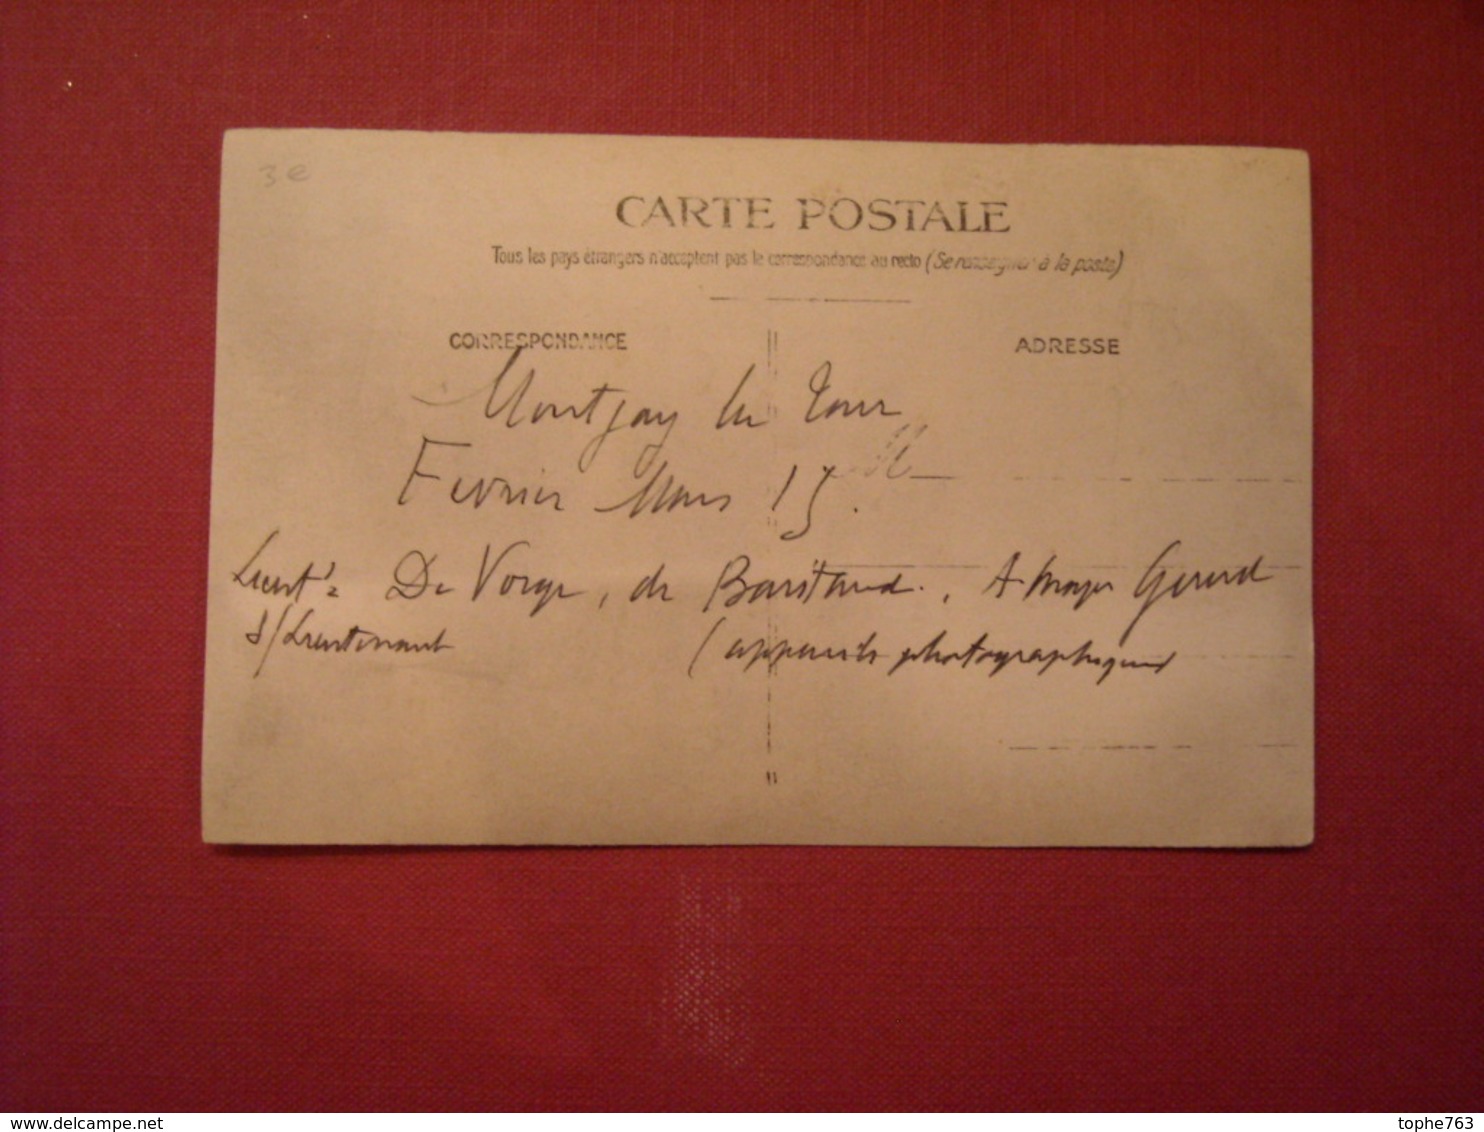 3 e
CARTE POSTALE
Tous les pays étrangers n'acceptent pas la correspondance au recto (Se renseigner à la poste)
CORRESPONDANCE
ADRESSE
Montjay la Tour
Fevrier Mars 15.
Lieut's De Vorge, de Baritaud., A-Major Gerard
S/Lieutenant
(appareils photographiques
delcampe.net
tophe763